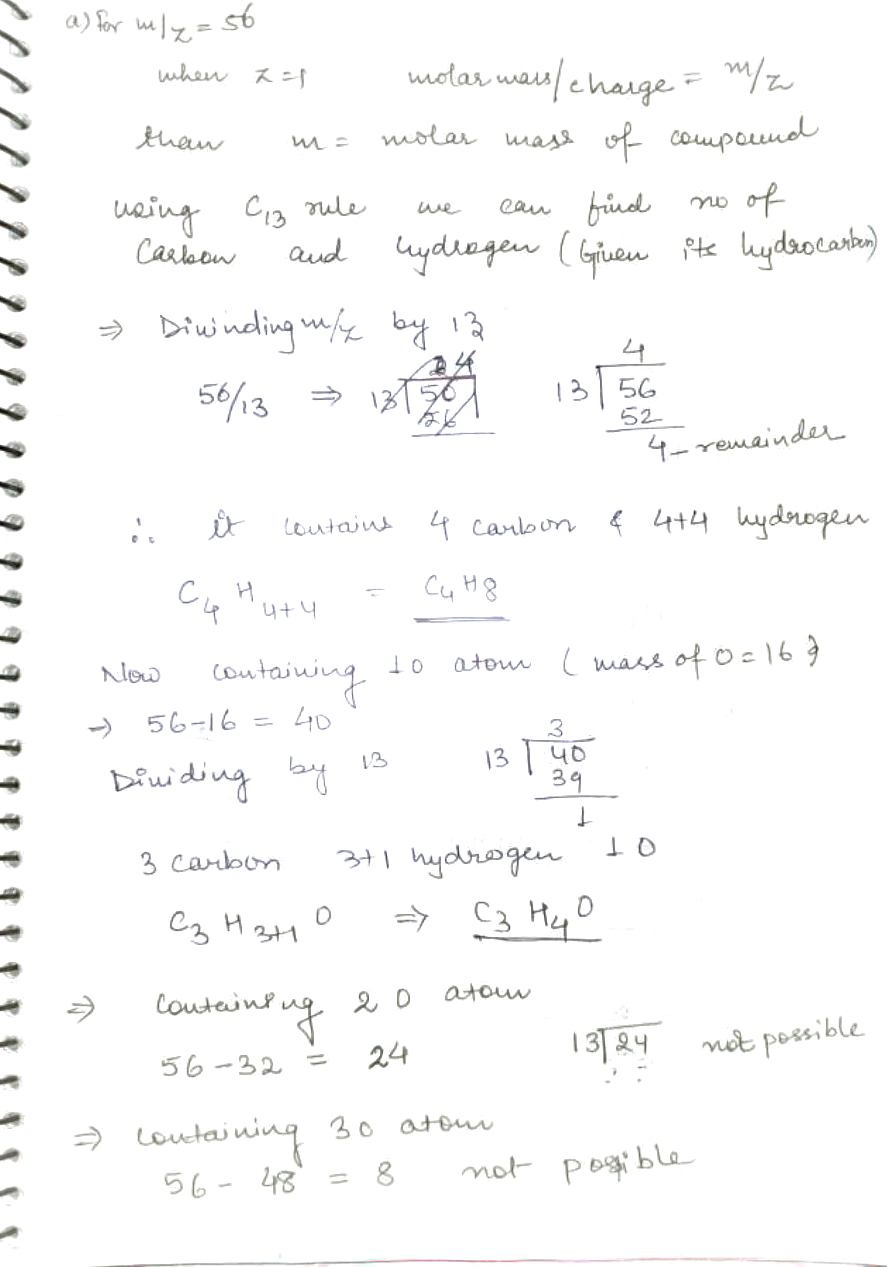 a) for m/z = 56
when z=1 molar mass/charge = m/z
then m = molar mass of compound
using C13 rule we can find no of
Carbon and hydrogen (Given its hydrocarbon)
⇒ Divinding m/z by 13
56/13 ⇒ 13 56 4
52
4 - remainder
∴ it contains 4 carbon & 4+4 hydrogen
C4 H4+4 = C4H8
Now containing 1 O atom ( mass of O = 16 }
→ 56-16 = 40
Dividing by 13 13 40 3
39
1
3 carbon 3+1 hydrogen 1 O
C3 H3+1 O ⇒ C3 H4 O
⇒ Containing 2 O atom
56-32 = 24 13 24 not possible
⇒ containing 3 O atom
56 - 48 = 8 not possible